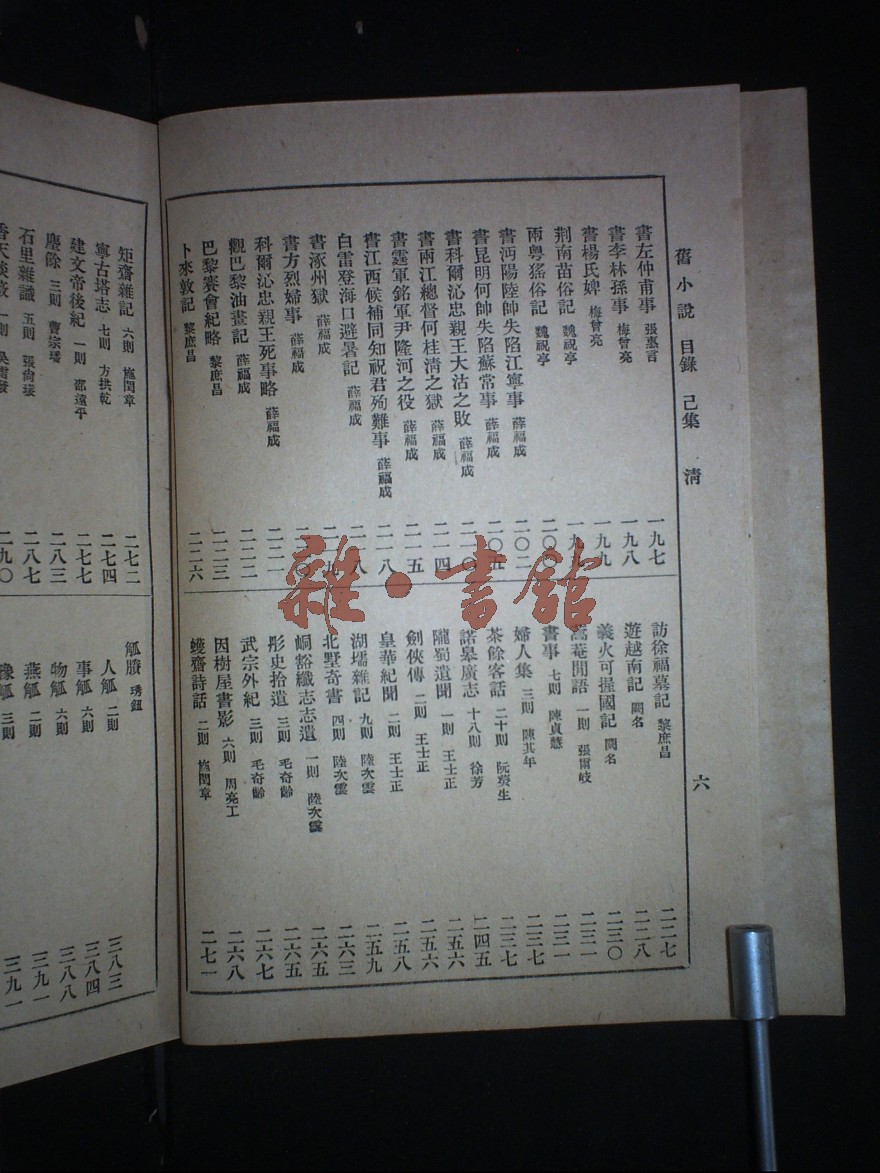 舊小說 目錄 己集 清 六
書左仲甫事 張惠言 一九七
書李林孫事 梅曾亮 一九八
書楊氏婢 梅曾亮 一九九
荆南苗俗記 魏祝亭 一九九
兩粤猺俗記 魏祝亭 二〇〇
書沔陽陸帥失陷江寧事 薛福成 二〇二
書昆明何帥失陷蘇常事 薛福成 二〇五
書科爾沁忠親王大沽之敗 薛福成 二一〇
書兩江總督何桂清之獄 薛福成 二一四
書霆軍銘軍尹隆河之役 薛福成 二一五
書江西候補同知祝君殉難事 薛福成 二一八
白雷登海口避暑記 薛福成 二一八
書涿州獄 薛福成 二一九
書方烈婦事 薛福成 二二〇
科爾沁忠親王死事略 薛福成 二二一
觀巴黎油畫記 薛福成 二二二
巴黎賽會紀略 黎庶昌 二二三
卜來敦記 黎庶昌 二二六
訪徐福墓記 黎庶昌 二二七
遊越南記 闕名 二二八
義火可握國記 闕名 二三〇
蒿菴閒語 一則 張爾岐 二三一
書事 七則 陳貞慧 二三一
婦人集 三則 陳其年 二三七
茶餘客話 二十則 阮葵生 二三七
諾皋廣志 十八則 徐芳 二四五
隴蜀遺聞 一則 王士正 二五六
劍俠傳 二則 王士正 二五六
皇華紀聞 二則 王士正 二五八
湖壖雜記 九則 陸次雲 二五九
北墅奇書 四則 陸次雲 二六三
峒谿纖志志遺 一則 陸次雲 二六五
彤史拾遺 三則 毛奇齡 二六五
武宗外紀 三則 毛奇齡 二六七
因樹屋書影 六則 周亮工 二六八
蠖齋詩話 二則 施閏章 二七一
矩齋雜記 六則 施閏章 二七二
寧古塔志 七則 方拱乾 二七四
建文帝後紀 一則 邵遠平 二七七
塵餘 三則 曹宗璠 二八三
石里雜識 五則 張尙瑗 二八七
一則 二九〇
觚賸 琇鈕
人觚 二則 三八三
事觚 六則 三八四
物觚 六則 三八八
燕觚 二則 三九一
豫觚 三則 三九一
雜·書館